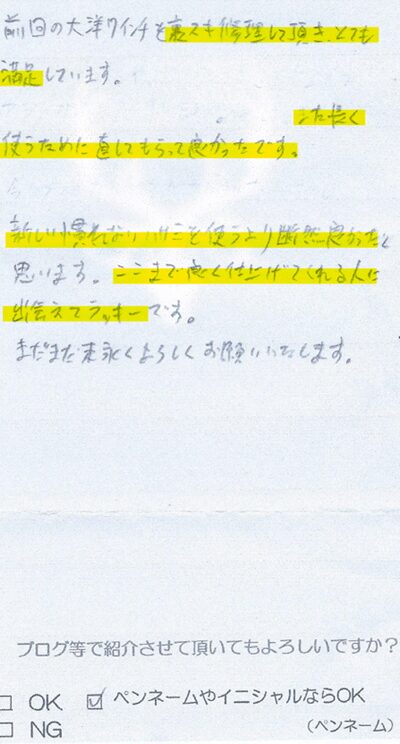 前回の大洋7インチを裏スキ修理して頂き、とても
満足しています。
た長く
使うために直してもらって良かったです。
新しい慣れないハサミを使うより断然良かったと
思います。ここまで良く仕上げてくれる人に
出会えてラッキーです。
まだまだ末永くよろしくお願いいたします。
ブログ等で紹介させて頂いてもよろしいですか?
□ OK ☑ ペンネームやイニシャルならOK
□ NG (ペンネーム)